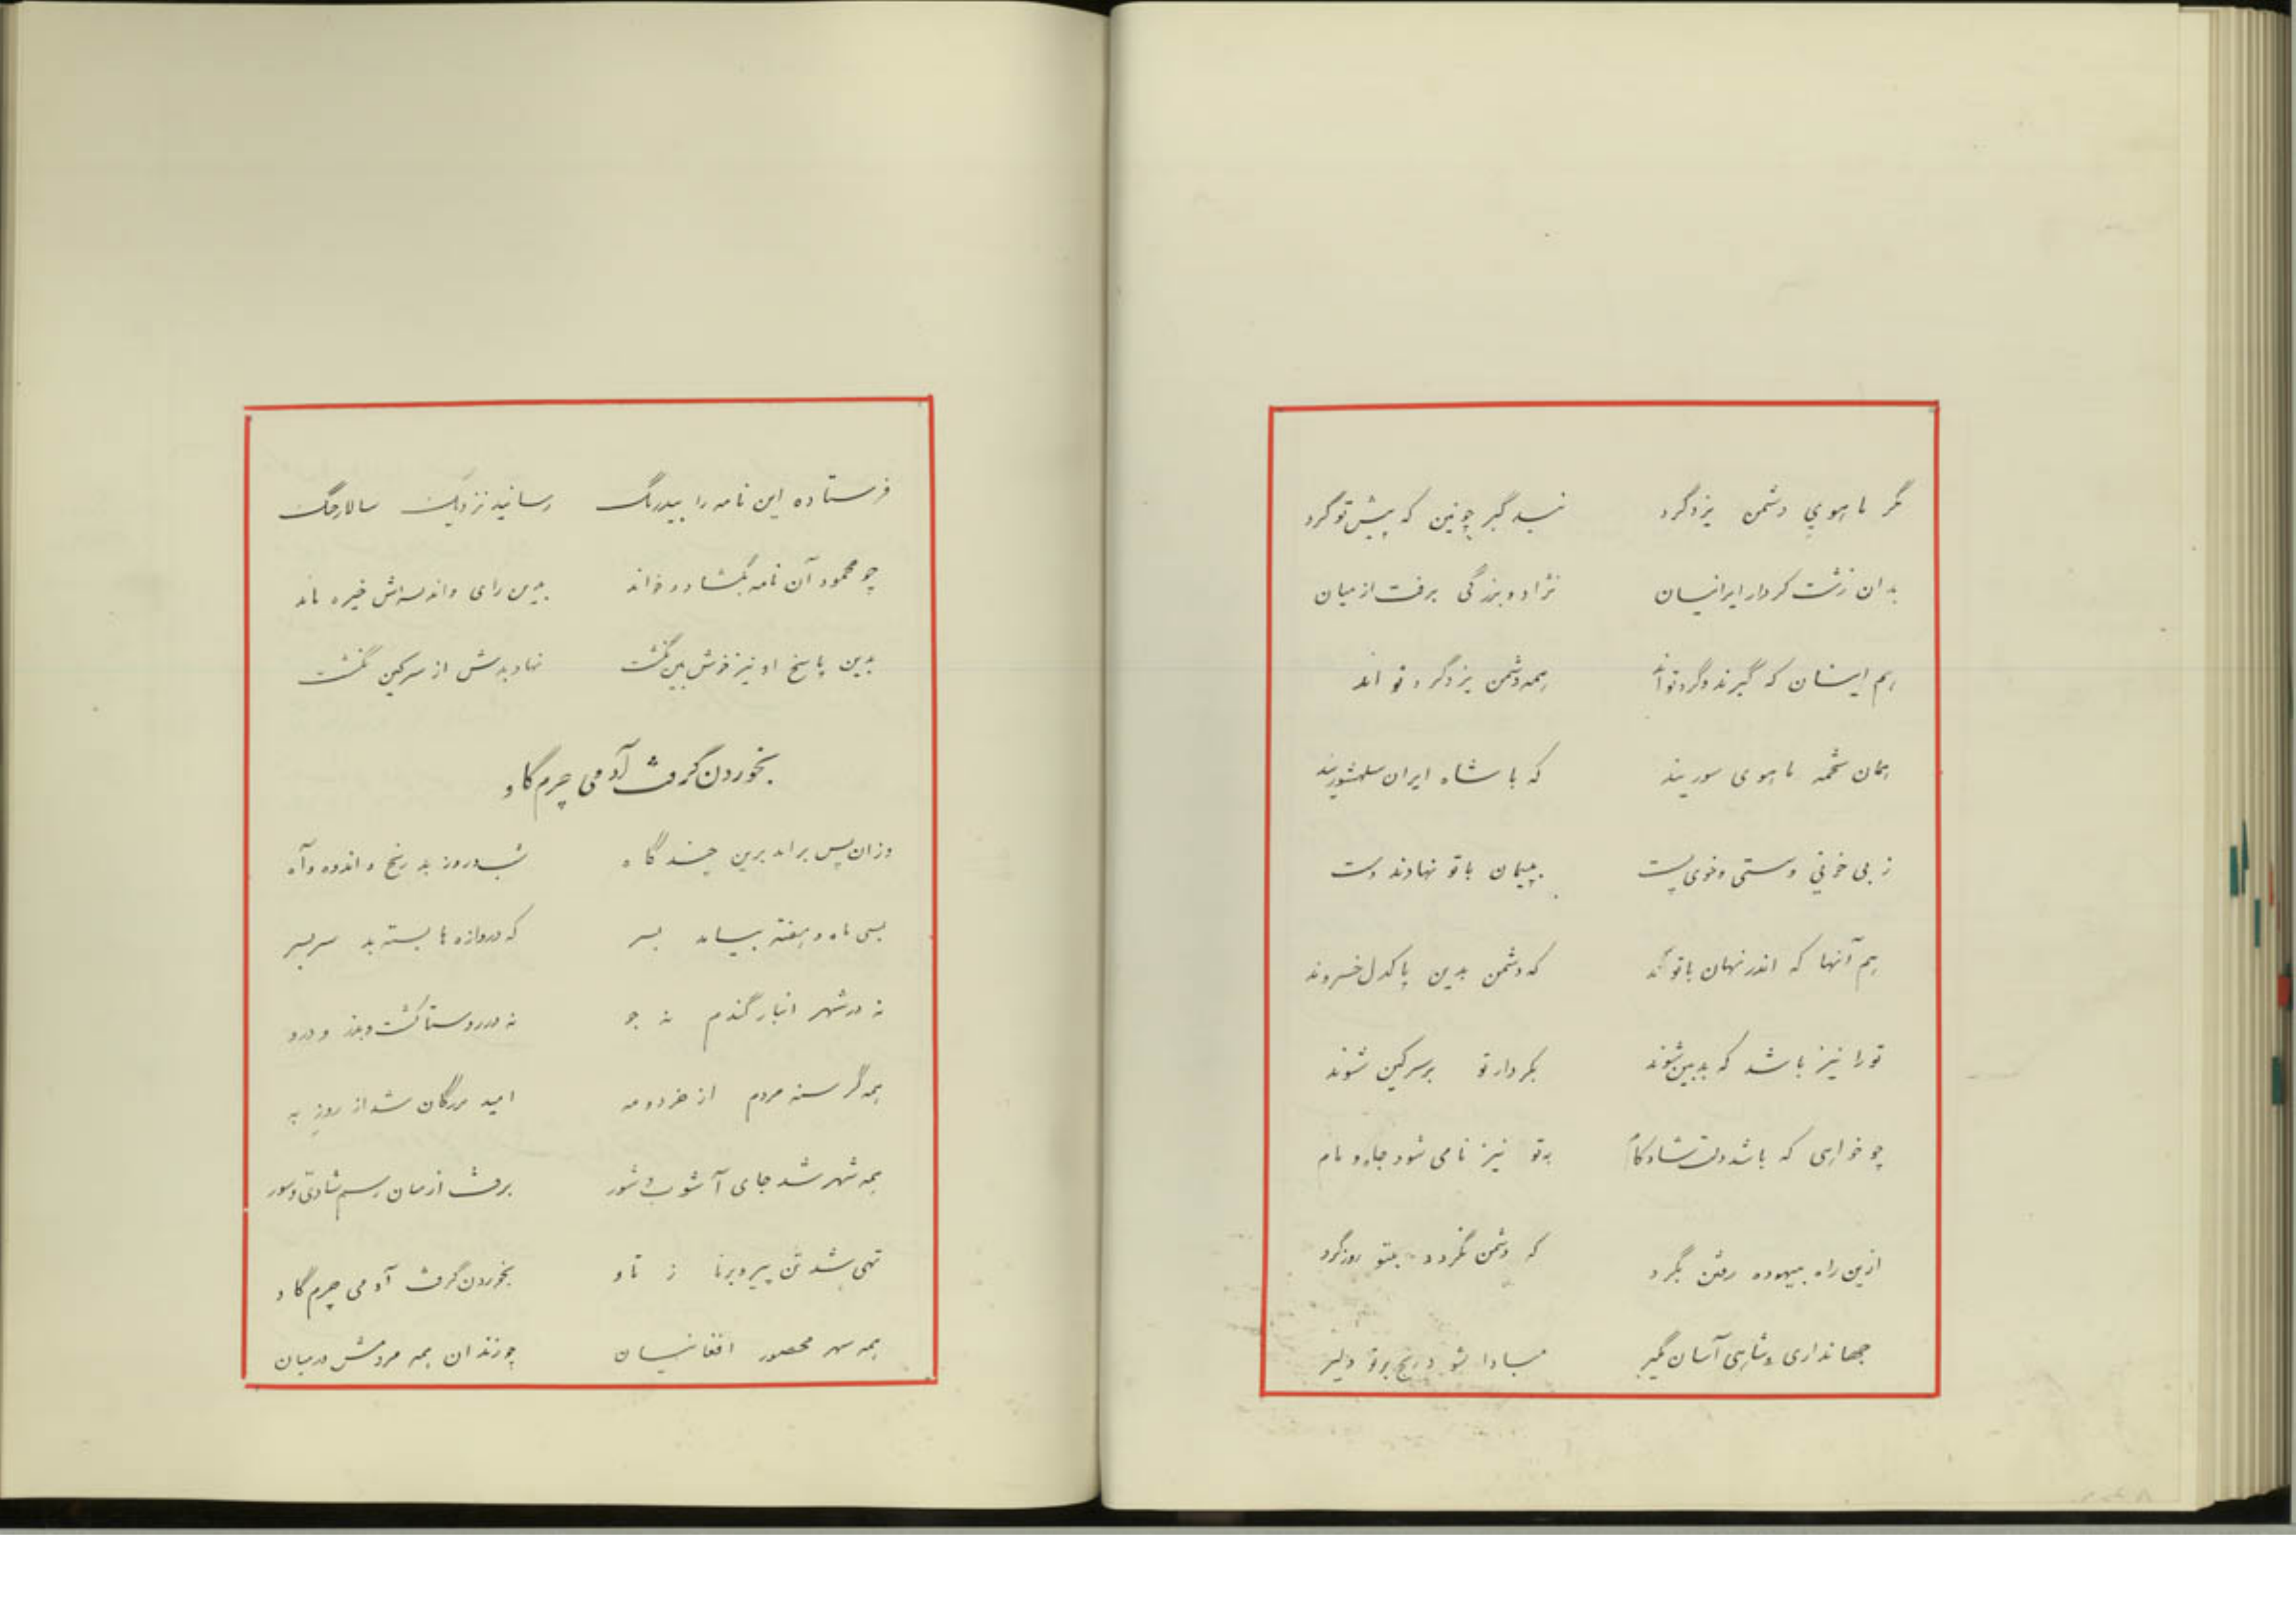 مگر ماهوی دشمن یزدگرد نبد گبر چونین که پیش تو گرد
بدان زشت کردار ایرانیان نژاد و بزرگی برفت از میان
هم اینان که گیرند و گرد تو اند همه دشمن یزدگرد تو اند
همان تخمه ماهوی سوریند که با شاه ایران
ز بی خونی و سستی و خوی پست بپیمان با تو نهادند دست
هم آنها که اندر نهان با تو اند که دشمن بدین پاکدل خسروند
تو را نیز باشد که بدبین شوند بکردار تو بر سر کین شوند
چو خواهی که باشد دلت شادکام بتو نیز نامی شود جاه و نام
ازین راه بیهوده رفتن بگرد که دشمن نگردد بتو روزگرد
جهانداری و شاهی آسان مگیر مبادا شود رنج بر تو دلیر
فرستاده این نامه را بیدرنگ رسانید نزدیک سالار جنگ
چو محمود آن نامه بگشاد و خواند بدین رای و اندیشه‌اش خیره ماند
بدین پاسخ او نیز خوش بین نگشت نهاد بدش از سر کین نگشت
بخوردن گرفت آدمی چرم گاو
وزان پس برآمد برین چند گاه شب و روز بد رنج و اندوه و آه
بسی ماه و هفته بیامد بسر که دروازه‌ها بسته بد سربسر
نه در شهر انبار گندم نه جو نه در روستا کشت و بذر و درو
همه گرسنه مردم از خرد و مه امید بزرگان شد از روز به
همه شهر شد جای آشوب و شور برفت از میان رسم شادی و سور
تهی شد تن پیر و برنا ز تاو بخوردن گرفت آدمی چرم گاو
همه شهر محصور افغانیان چو زندان همه مردمش در میان